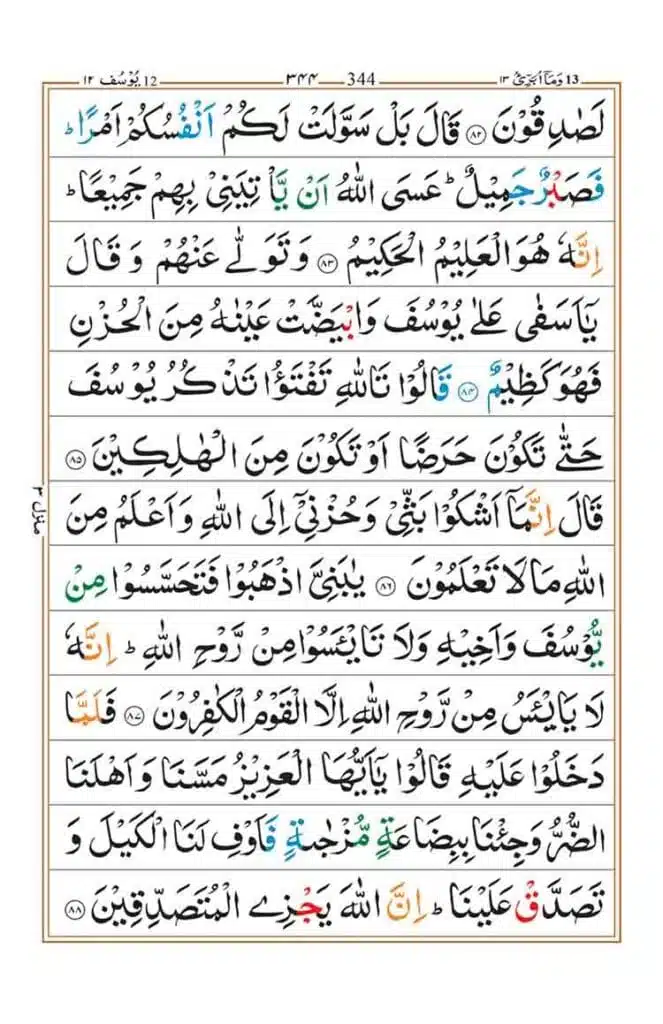 12 يُوْسُف ١٢ 344 ٣٤٤ 13 وَمَاۤ اُبَرِّئُ ١٣
لَصٰدِقُوْنَ ﴿۸۲﴾ قَالَ بَلْ سَوَّلَتْ لَكُمْ اَنْفُسُكُمْ اَمْرًا ؕ
فَصَبْرٌ جَمِيْلٌ ؕ عَسَى اللّٰهُ اَنْ يَّاْتِيَنِيْ بِهِمْ جَمِيْعًا ؕ
اِنَّهٗ هُوَ الْعَلِيْمُ الْحَكِيْمُ ﴿۸۳﴾ وَ تَوَلّٰى عَنْهُمْ وَ قَالَ
يٰۤاَسَفٰى عَلٰى يُوْسُفَ وَابْيَضَّتْ عَيْنٰهُ مِنَ الْحُزْنِ
فَهُوَ كَظِيْمٌ ﴿۸۴﴾ قَالُوْا تَاللّٰهِ تَفْتَؤُا تَذْكُرُ يُوْسُفَ
حَتّٰى تَكُوْنَ حَرَضًا اَوْ تَكُوْنَ مِنَ الْهٰلِكِيْنَ ﴿۸۵﴾
قَالَ اِنَّمَاۤ اَشْكُوْا بَثِّيْ وَ حُزْنِيْۤ اِلَى اللّٰهِ وَ اَعْلَمُ مِنَ
اللّٰهِ مَا لَا تَعْلَمُوْنَ ﴿۸۶﴾ يٰبَنِيَّ اذْهَبُوْا فَتَحَسَّسُوْا مِنْ
يُّوْسُفَ وَ اَخِيْهِ وَلَا تَايْـَٔسُوْا مِنْ رَّوْحِ اللّٰهِ ؕ اِنَّهٗ
لَا يَايْـَٔسُ مِنْ رَّوْحِ اللّٰهِ اِلَّا الْقَوْمُ الْكٰفِرُوْنَ ﴿۸۷﴾ فَلَمَّا
دَخَلُوْا عَلَيْهِ قَالُوْا يٰۤاَيُّهَا الْعَزِيْزُ مَسَّنَا وَ اَهْلَنَا
الضُّرُّ وَجِئْنَا بِبِضَاعَةٍ مُّزْجٰىةٍ فَاَوْفِ لَنَا الْكَيْلَ وَ
تَصَدَّقْ عَلَيْنَا ؕ اِنَّ اللّٰهَ يَجْزِي الْمُتَصَدِّقِيْنَ ﴿۸۸﴾
منزل ٣